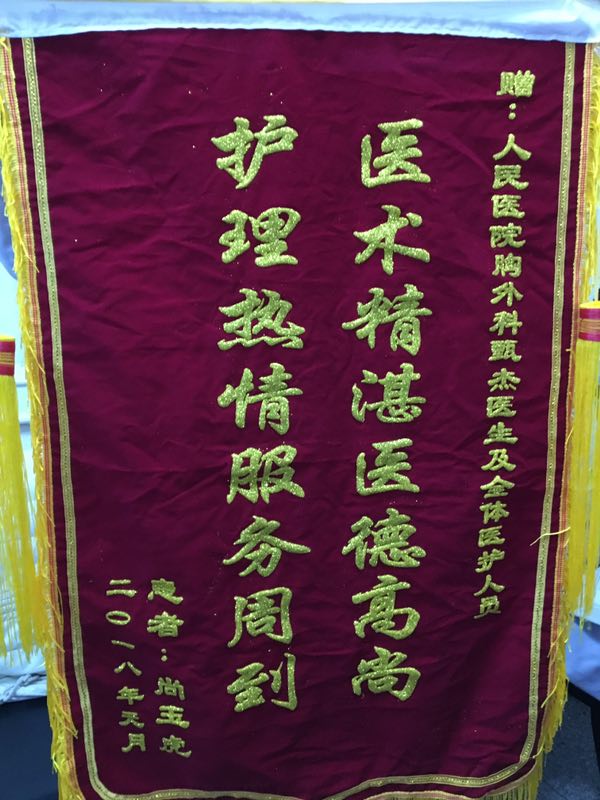 赠：人民医院胸外科甄杰医生及全体医护人员
医术精湛医德高尚
护理热情服务周到
患者：尚玉虎
二〇一八年元月